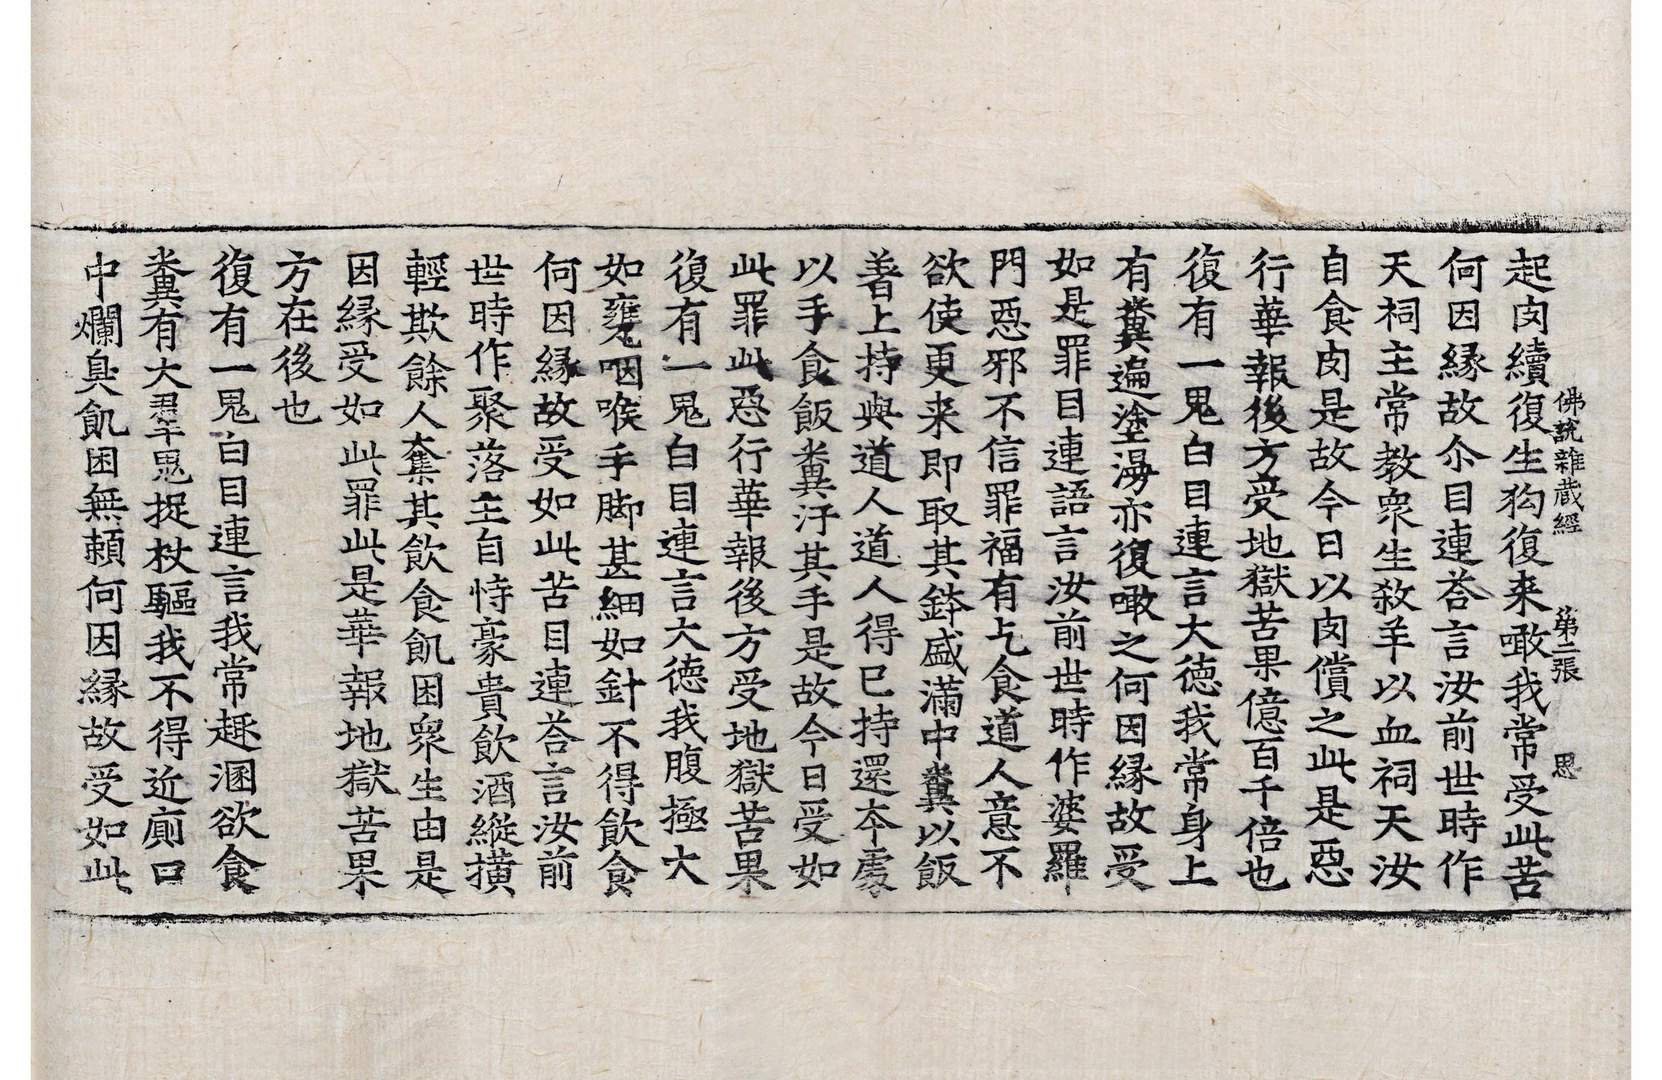 佛說雜蔵經 第二張 思
起肉續復生狗復来噉我常受此苦
何因縁故尒目連荅言汝前世時作
天祠主常教衆生殺羊以血祠天汝
自食肉是故今日以肉償之此是惡
行華報後方受地獄苦果億百千倍也
復有一鬼白目連言大德我常身上
有糞遍塗漫亦復噉之何因縁故受
如是罪目連語言汝前世時作婆羅
門惡邪不信罪福有乞食道人意不
欲使更来即取其鉢盛滿中糞以飯
著上持與道人道人得已持還本處
以手食飯糞汙其手是故今日受如
此罪此惡行華報後方受地獄苦果
復有一鬼白目連言大德我腹極大
如甕咽喉手脚甚細如針不得飲食
何因縁故受如此苦目連荅言汝前
世時作聚落主自恃豪貴飲酒縱横
輕欺餘人奪其飲食飢困衆生由是
因縁受如此罪此是華報地獄苦果
方在後也
復有一鬼白目連言我常趣溷欲食
糞有大羣鬼捉杖驅我不得近廁口
中爛臭飢困無頼何因縁故受如此